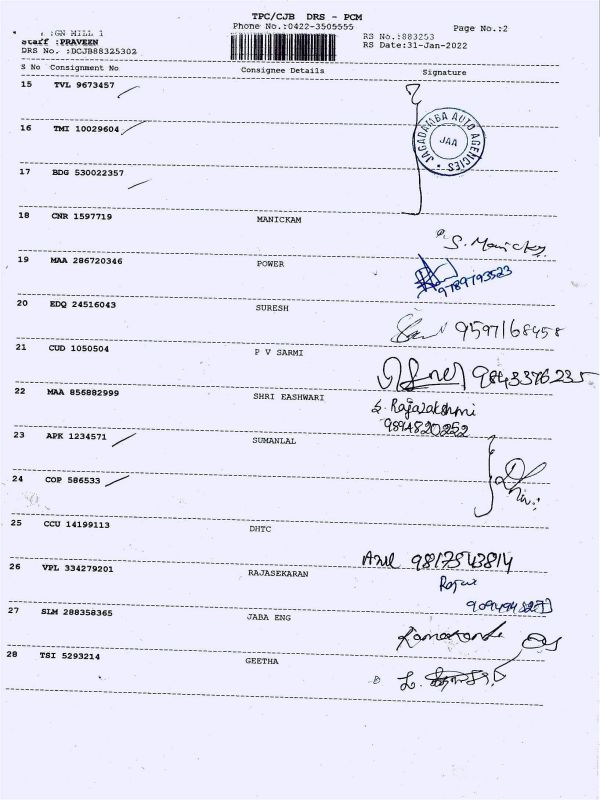 TPC/CJB DRS - PCM
Phone No.:0422-3505555 Page No.:2
:GN HILL 1 RS No.:883253
Staff :PRAVEEN RS Date:31-Jan-2022
DRS No. :DCJB88325302
S No Consignment No Consignee Details Signature
15 TVL 9673457
JAGADAMBA AUTO AGENCIES
JAA
16 TMI 10029604
17 BDG 530022357
18 CNR 1597719 MANICKAM
S. Manickam
19 MAA 286720346 POWER
9789793523
20 EDQ 24516043 SURESH
9597168458
21 CUD 1050504 P V SARMI
9843376235
22 MAA 856882999 SHRI EASHWARI
S. Rajalakshmi
9894820252
23 APK 1234571 SUMANLAL
24 COP 586533
25 CCU 14199113 DHTC
Anil 9817543814
26 VPL 334279201 RAJASEKARAN
27 SLM 288358365 JABA ENG
28 TSI 5293214 GEETHA